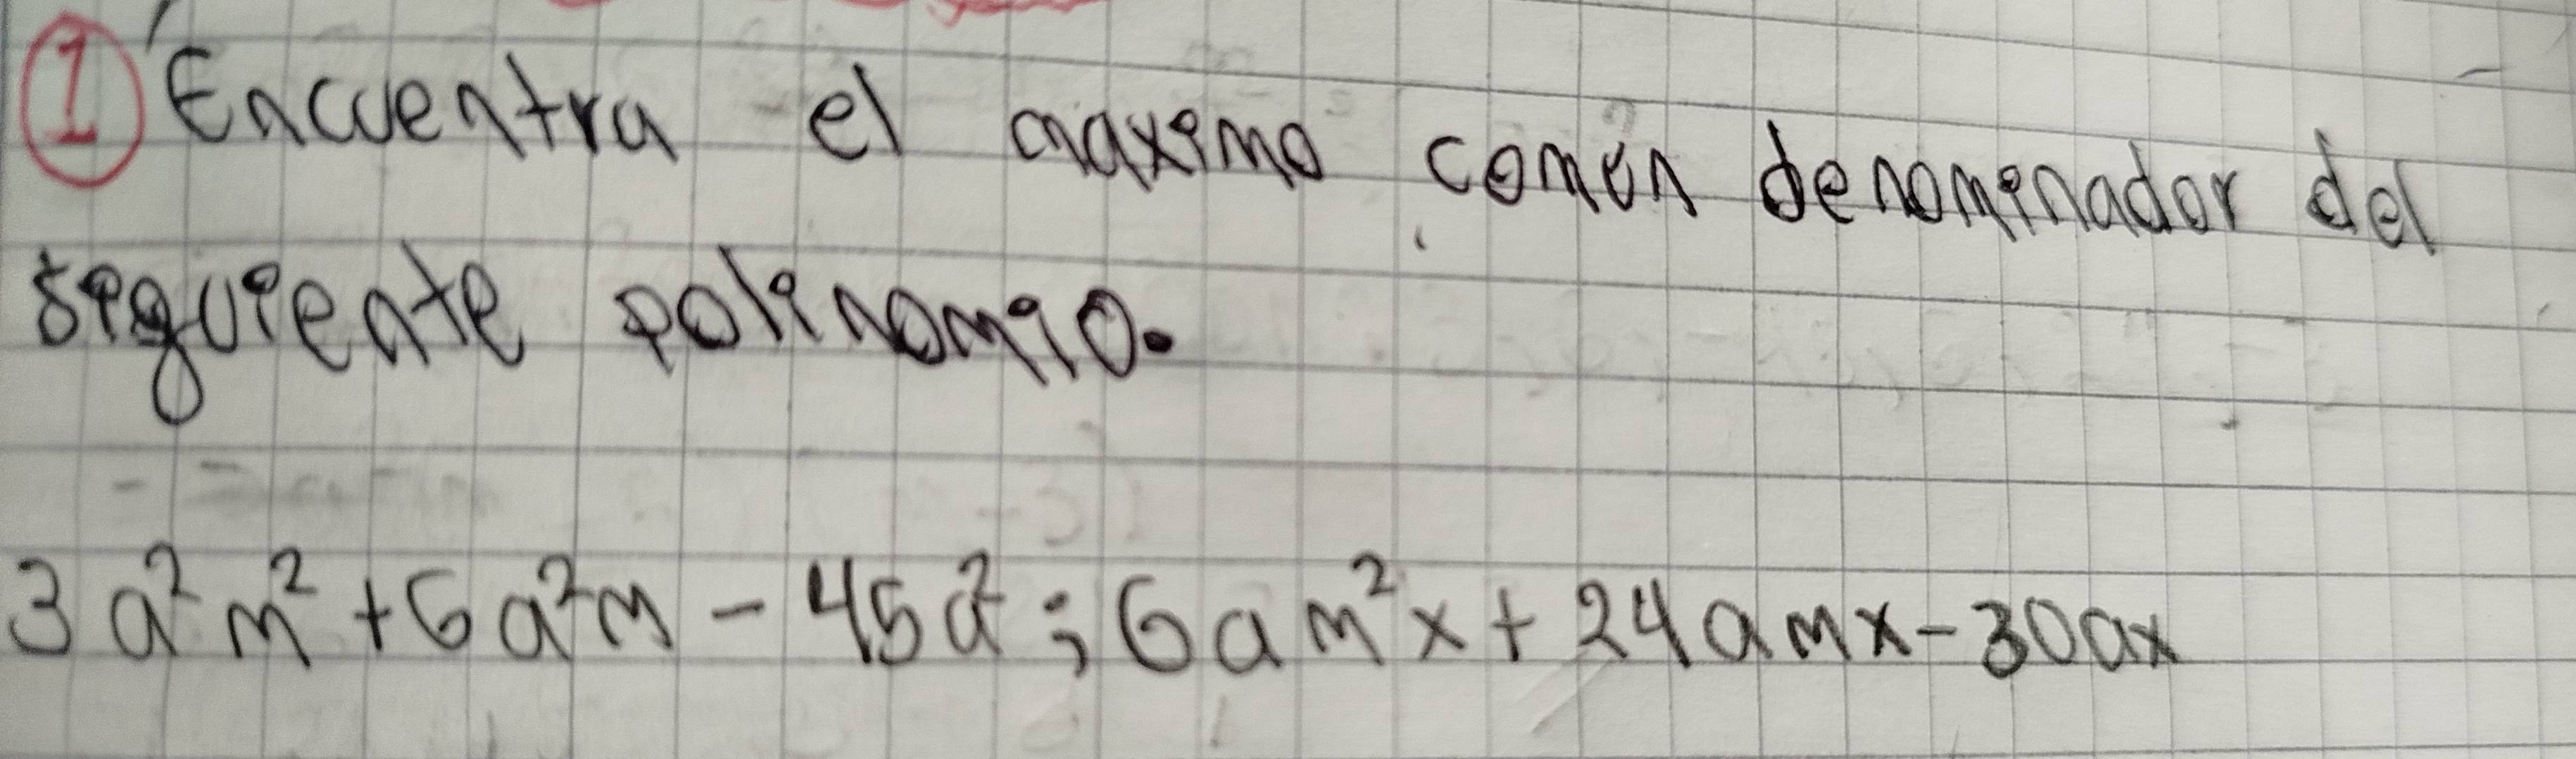 ① Encuentra el maximo común denominador del
siguiente polinomio.
3a²m² + 6a²m - 45a² ; 6am²x + 24amx - 30ax